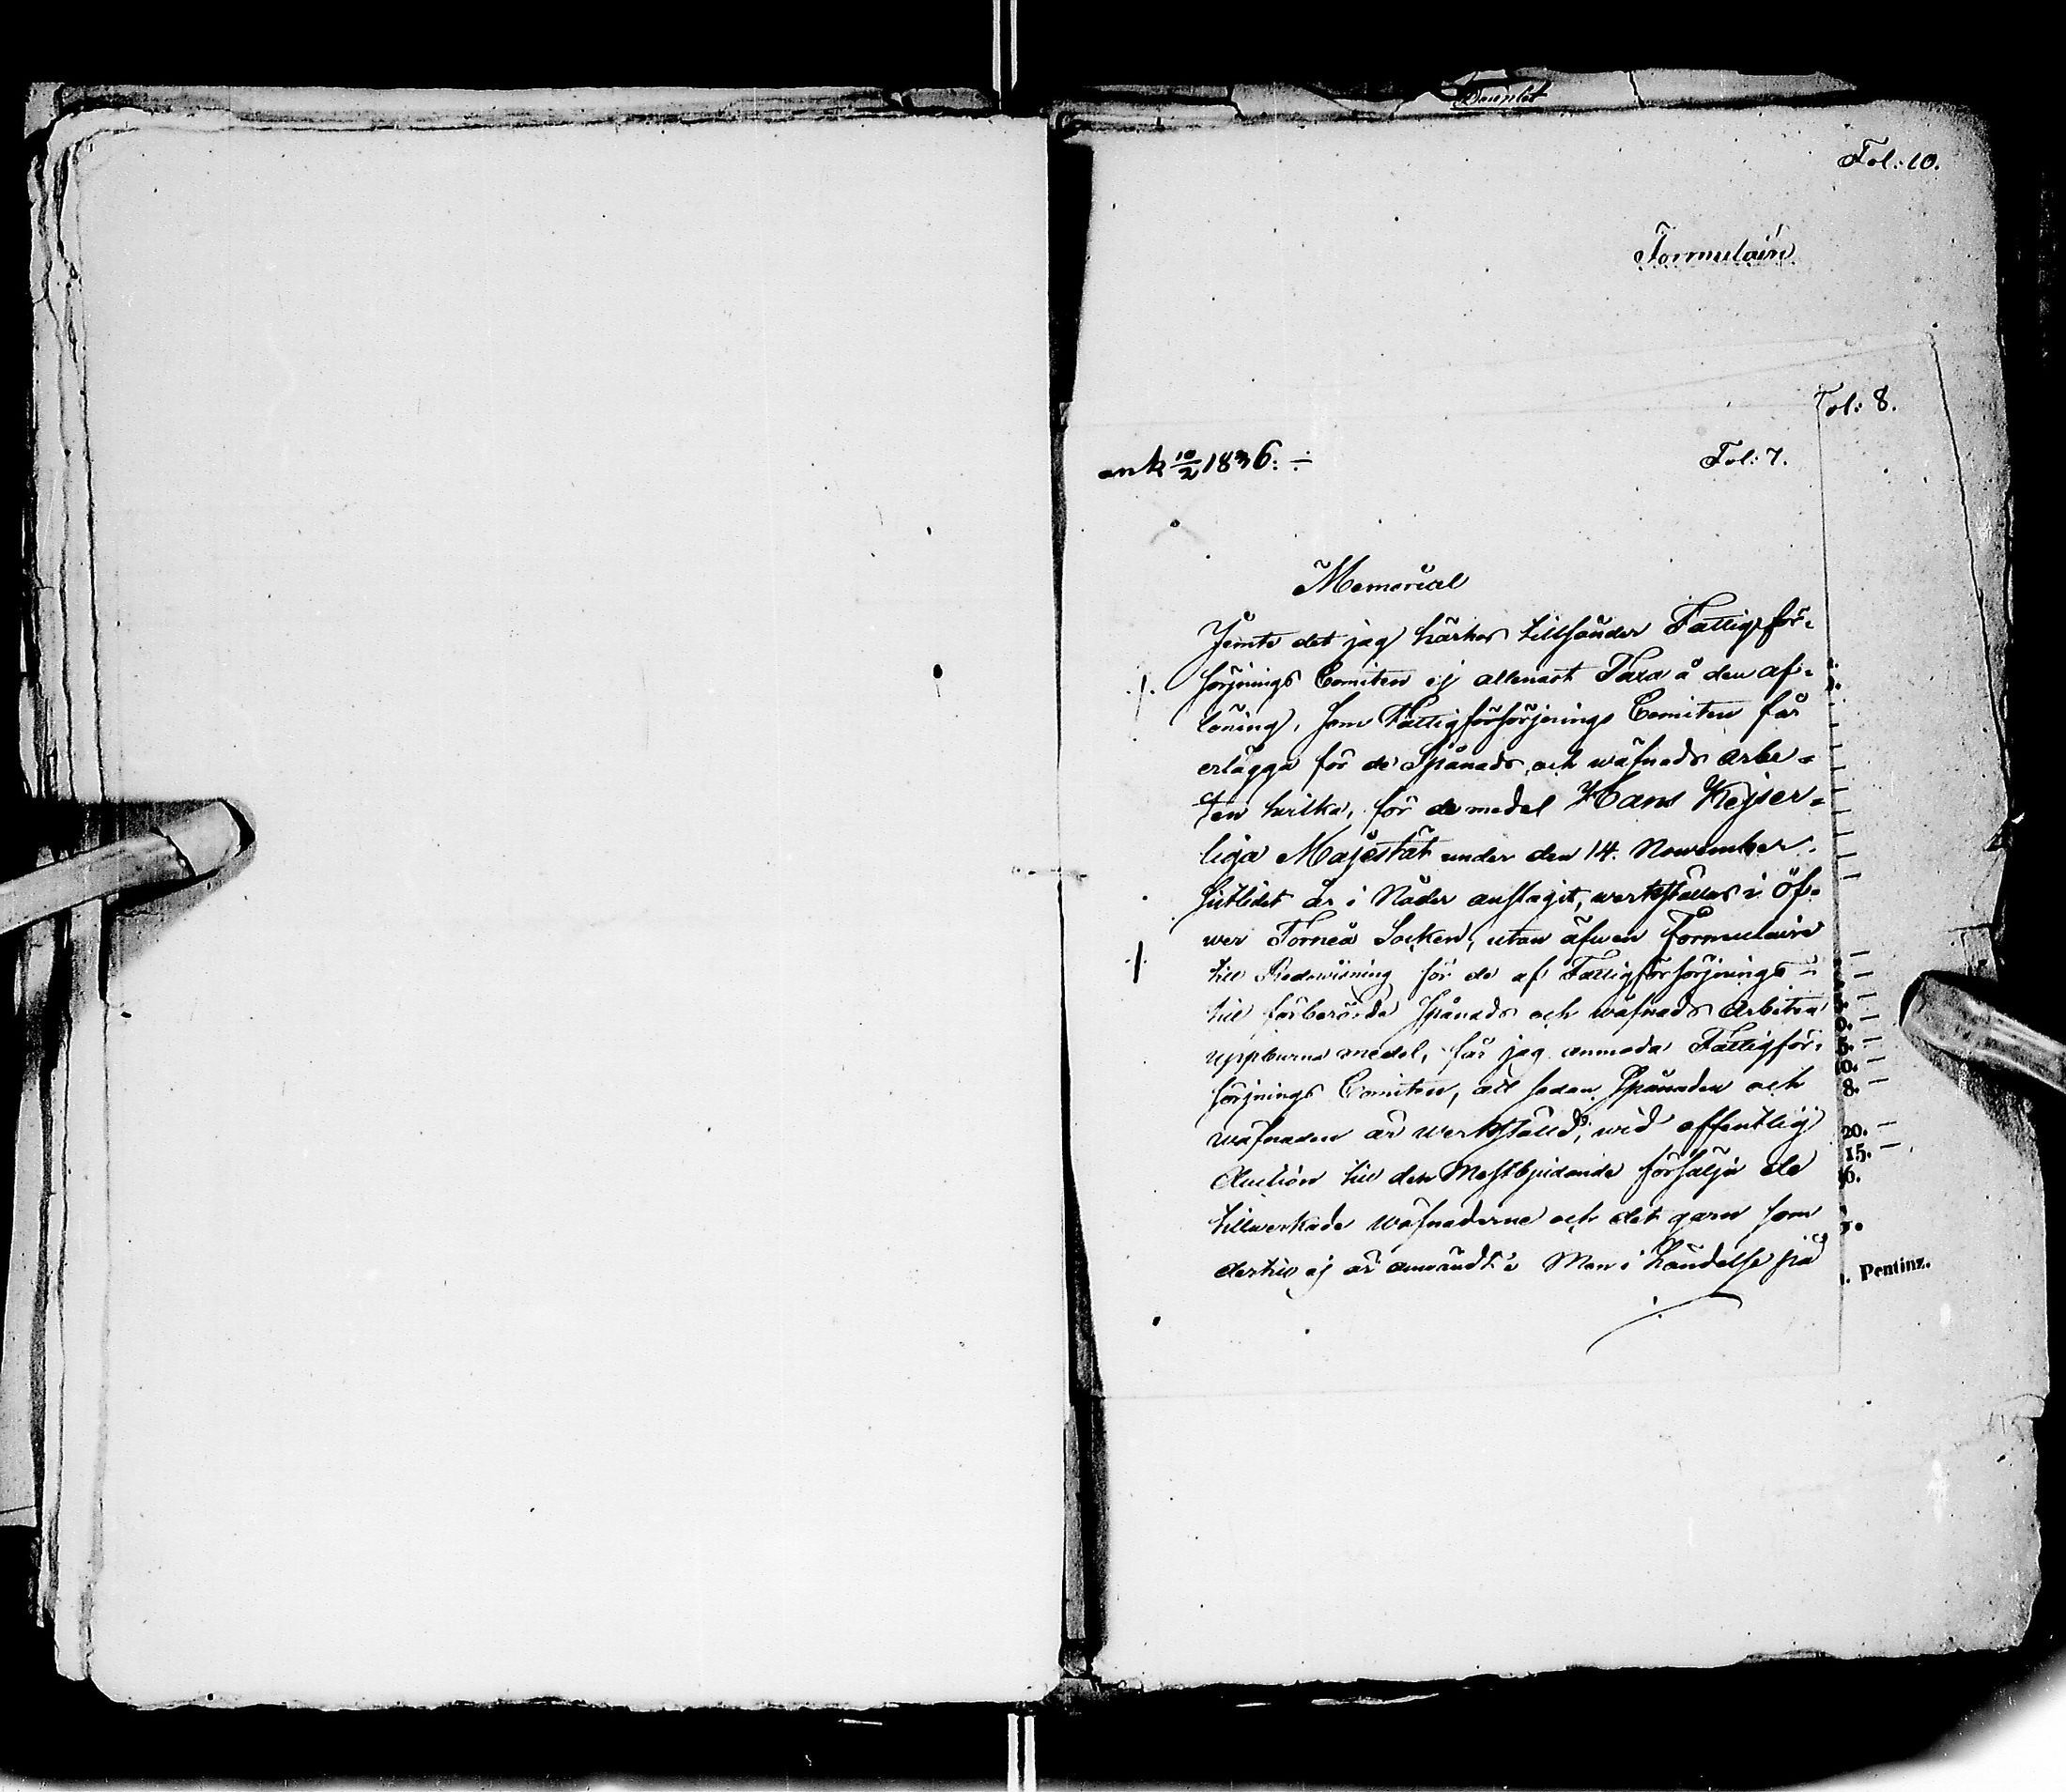 Fol: 10.
Formulair
Fol: 8.
ank 10/2 1836. ÷
Fol: 7.
Memorial
Jemte det jag härhos tillsänder Fattigför=
sörjnings Comiten ej allenast Taxa å den af=
löning, som Fattigförsörjnings Comiten får
erlägga för de Spånads och wäfnads arbe=
ten hvilka, för de medel Hans Kejser=
liga Majestät under den 14. November
sistlidet år i Nåder anslagit, werkställas i Öf=
wer Torneå Socken, utan äfwen Formulaire
till Redowisning för de af Fattigförsörjnings
till förberörde Spånads och wäfnads Arbeten
uppburne medel, får jag anmoda Fattigför=
sörjnings Comiten, att sedan Spånaden och
wäfnaden är werkstäld, wid offentlig
Auction till den Mestbjudande försälja de
tillwerkade wäfnaderne och det garn som
dertill ej är användt. Men i händelse på
5.
10.
8.
20.
15.
6.
Pentinz.